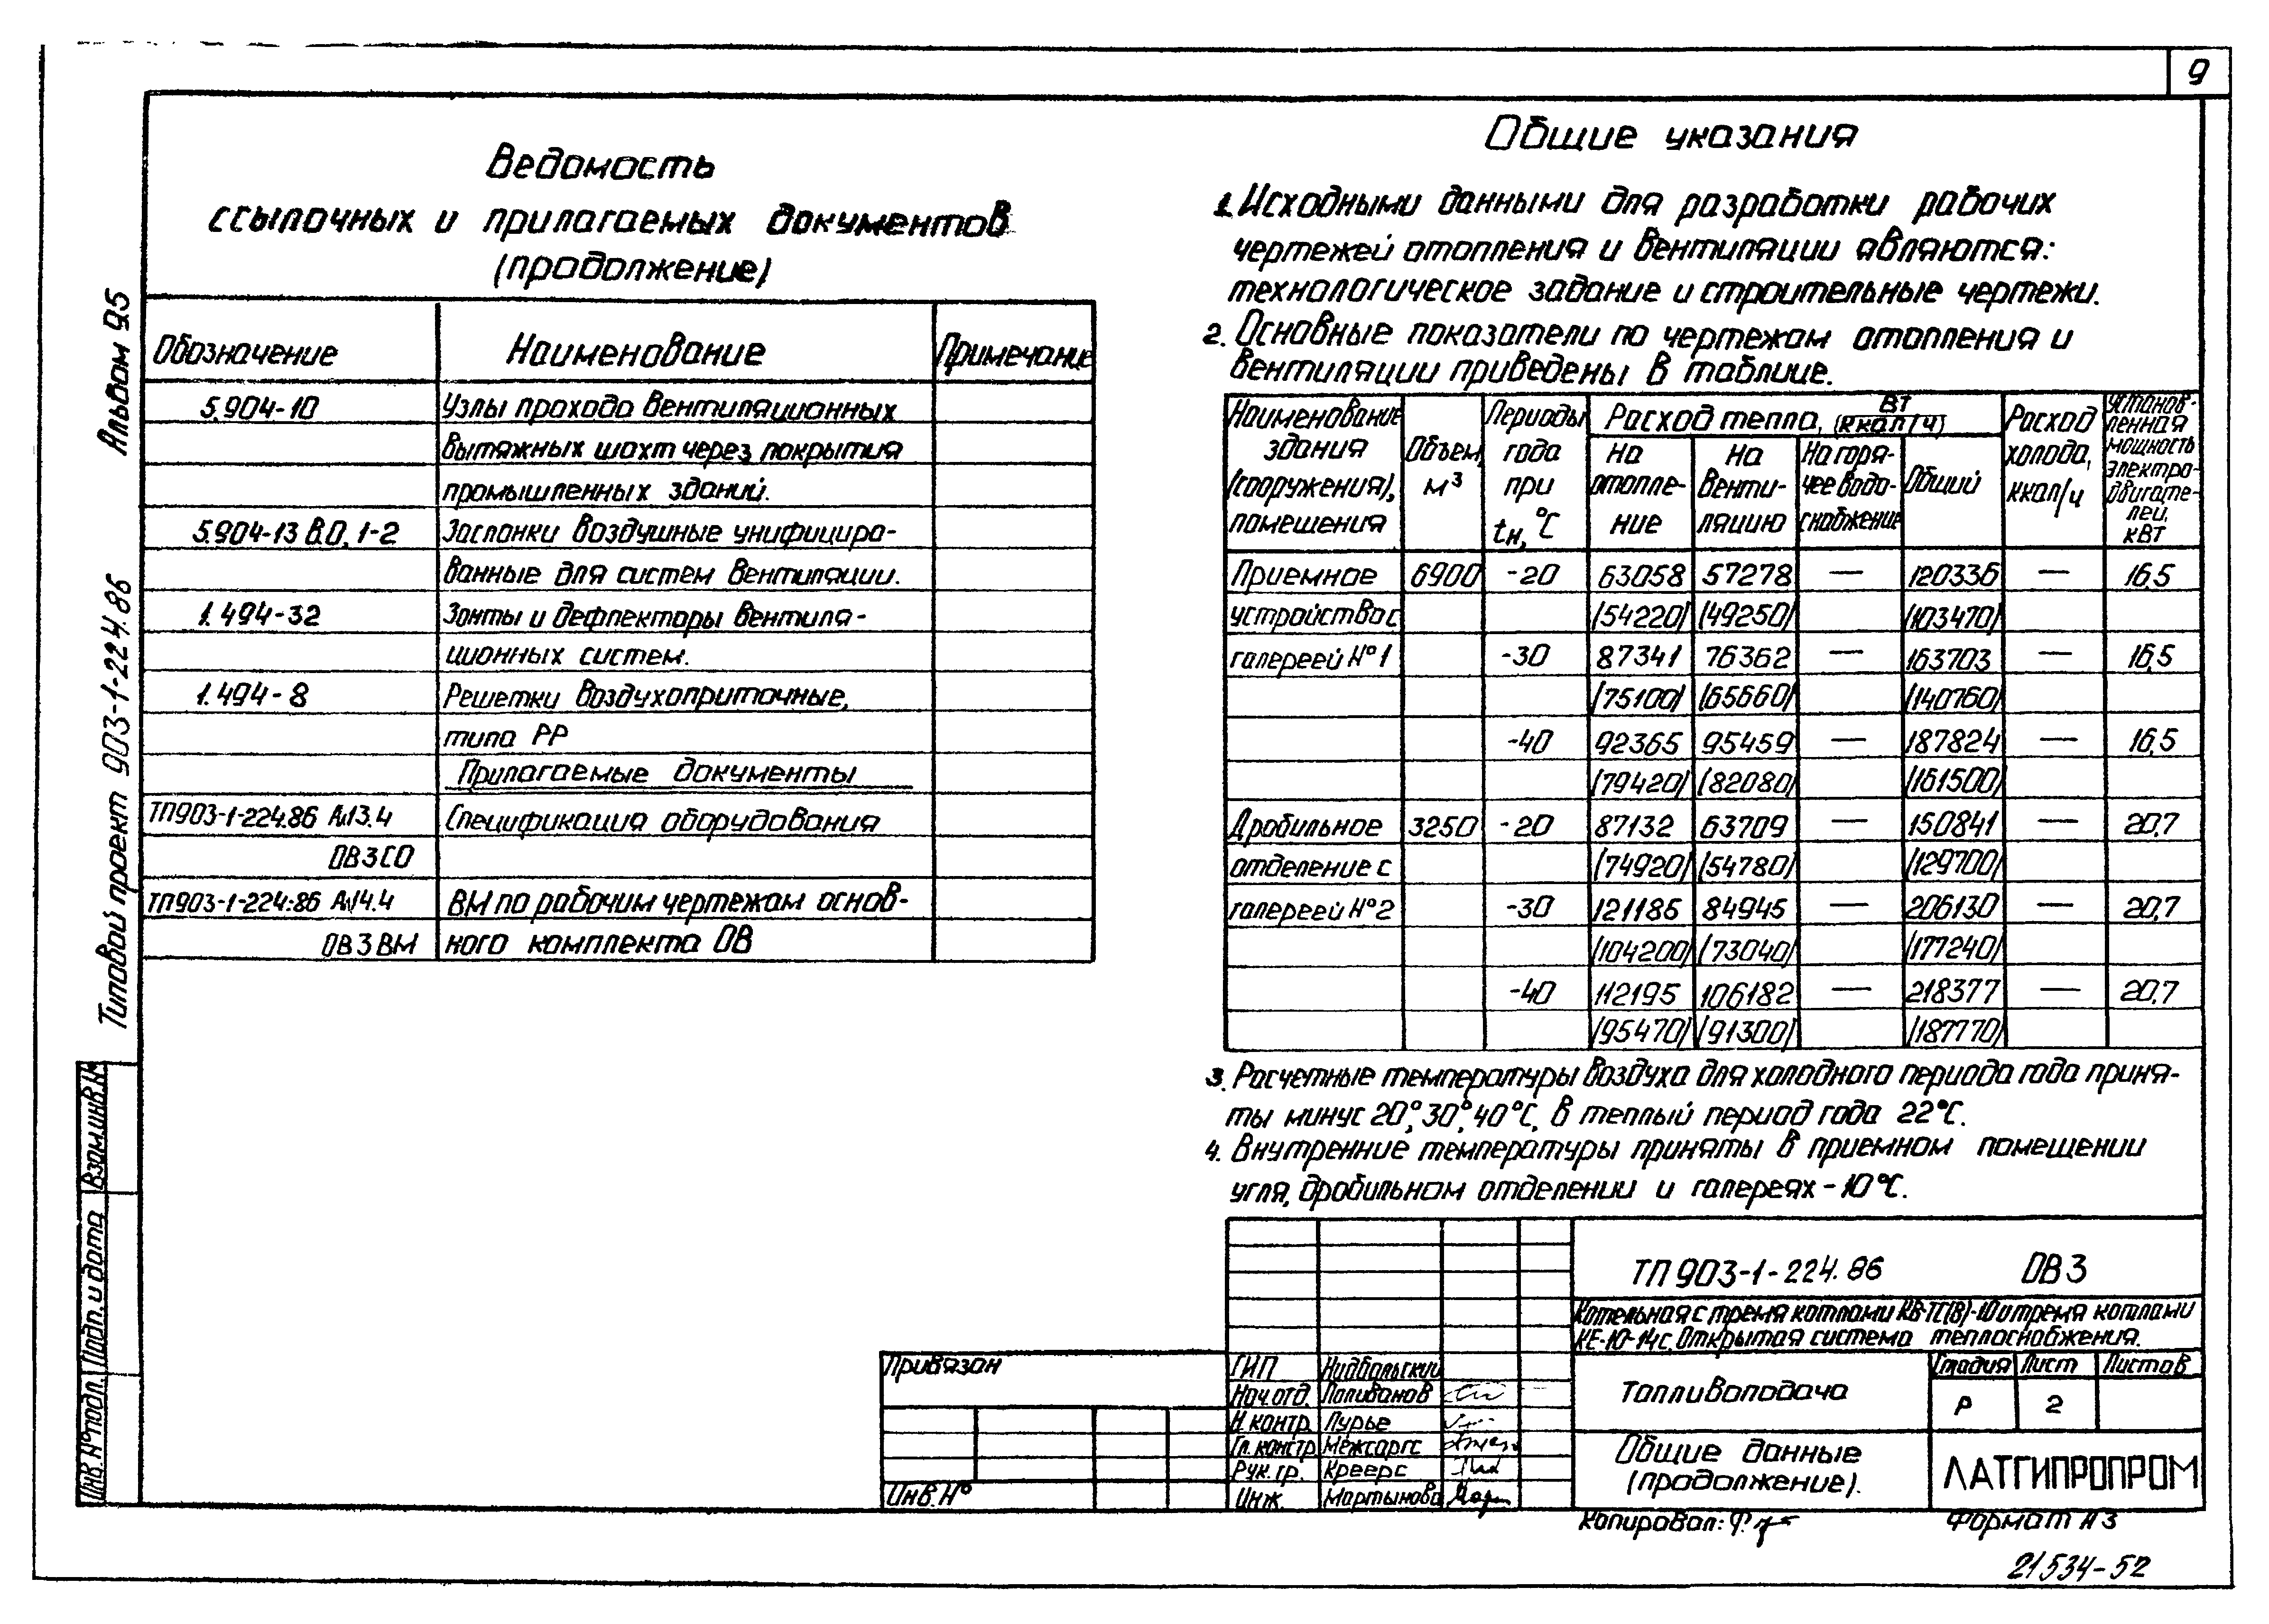 9
Альбом 9.5
Типовой проект 903-1-224.86
Ведомость
ссылочных и прилагаемых документов
(продолжение)
Обозначение Наименование Примечание
5.904-10 Узлы прохода вентиляционных
вытяжных шахт через покрытия
промышленных зданий.
5.904-13 В.0, 1-2 Заслонки воздушные унифициро-
ванные для систем вентиляции.
1.494-32 Зонты и дефлекторы вентиля-
ционных систем.
1.494-8 Решетки воздухоприточные,
типа РР
Прилагаемые документы
ТП903-1-224.86 Ал13.4 Спецификация оборудования
ОВ3СО
ТП903-1-224.86 Ал14.4 ВМ по рабочим чертежам основ-
ОВ3ВМ ного комплекта ОВ
Общие указания
1. Исходными данными для разработки рабочих
чертежей отопления и вентиляции являются:
технологическое задание и строительные чертежи.
2. Основные показатели по чертежам отопления и
вентиляции приведены в таблице.
Наименование здания (сооружения), помещения
Объем, м³
Периоды года при tн, °С
Расход тепла, Вт (ккал/ч)
На отопле-ние
На венти-ляцию
На горя-чее водо-снабжение
Общий
Расход холода, ккал/ч
Установ-ленная мощность электро-двигате-лей, кВт
Приемное 6900 -20 63058 57278 — 120336 — 16,5
устройство с /54220/ /49250/ /103470/
галереей №1 -30 87341 76362 — 163703 — 16,5
/75100/ /65660/ /140760/
-40 92365 95459 — 187824 — 16,5
/79420/ /82080/ /161500/
Дробильное 3250 -20 87132 63709 — 150841 — 20,7
отделение с /74920/ /54780/ /129700/
галереей №2 -30 121185 84945 — 206130 — 20,7
/104200/ /73040/ /177240/
-40 112195 106182 — 218377 — 20,7
/95470/ /91300/ /187770/
3. Расчетные температуры воздуха для холодного периода года приня-
ты минус 20°, 30°, 40°С, в теплый период года 22°С.
4. Внутренние температуры приняты в приемном помещении
угля, дробильном отделении и галереях - 10°С.
ТП 903-1-224.86 ОВ3
Котельная с тремя котлами КВ-ТС(В)-10 и тремя котлами
КЕ-10-14с. Открытая система теплоснабжения.
Топливоподача
Стадия Лист Листов
Р 2
Общие данные
(продолжение).
ЛАТГИПРОПРОМ
Привязан
Инв.№
ГИП Нидбальский
Нач.отд. Поливанов
Н.контр. Лурье
Гл.констр. Межсаргс
Рук.гр. Креерс
Инж. Мартынова
Взам.инв.№
Подп. и дата
Инв.№подл.
Копировал:
Формат А3
21534-52